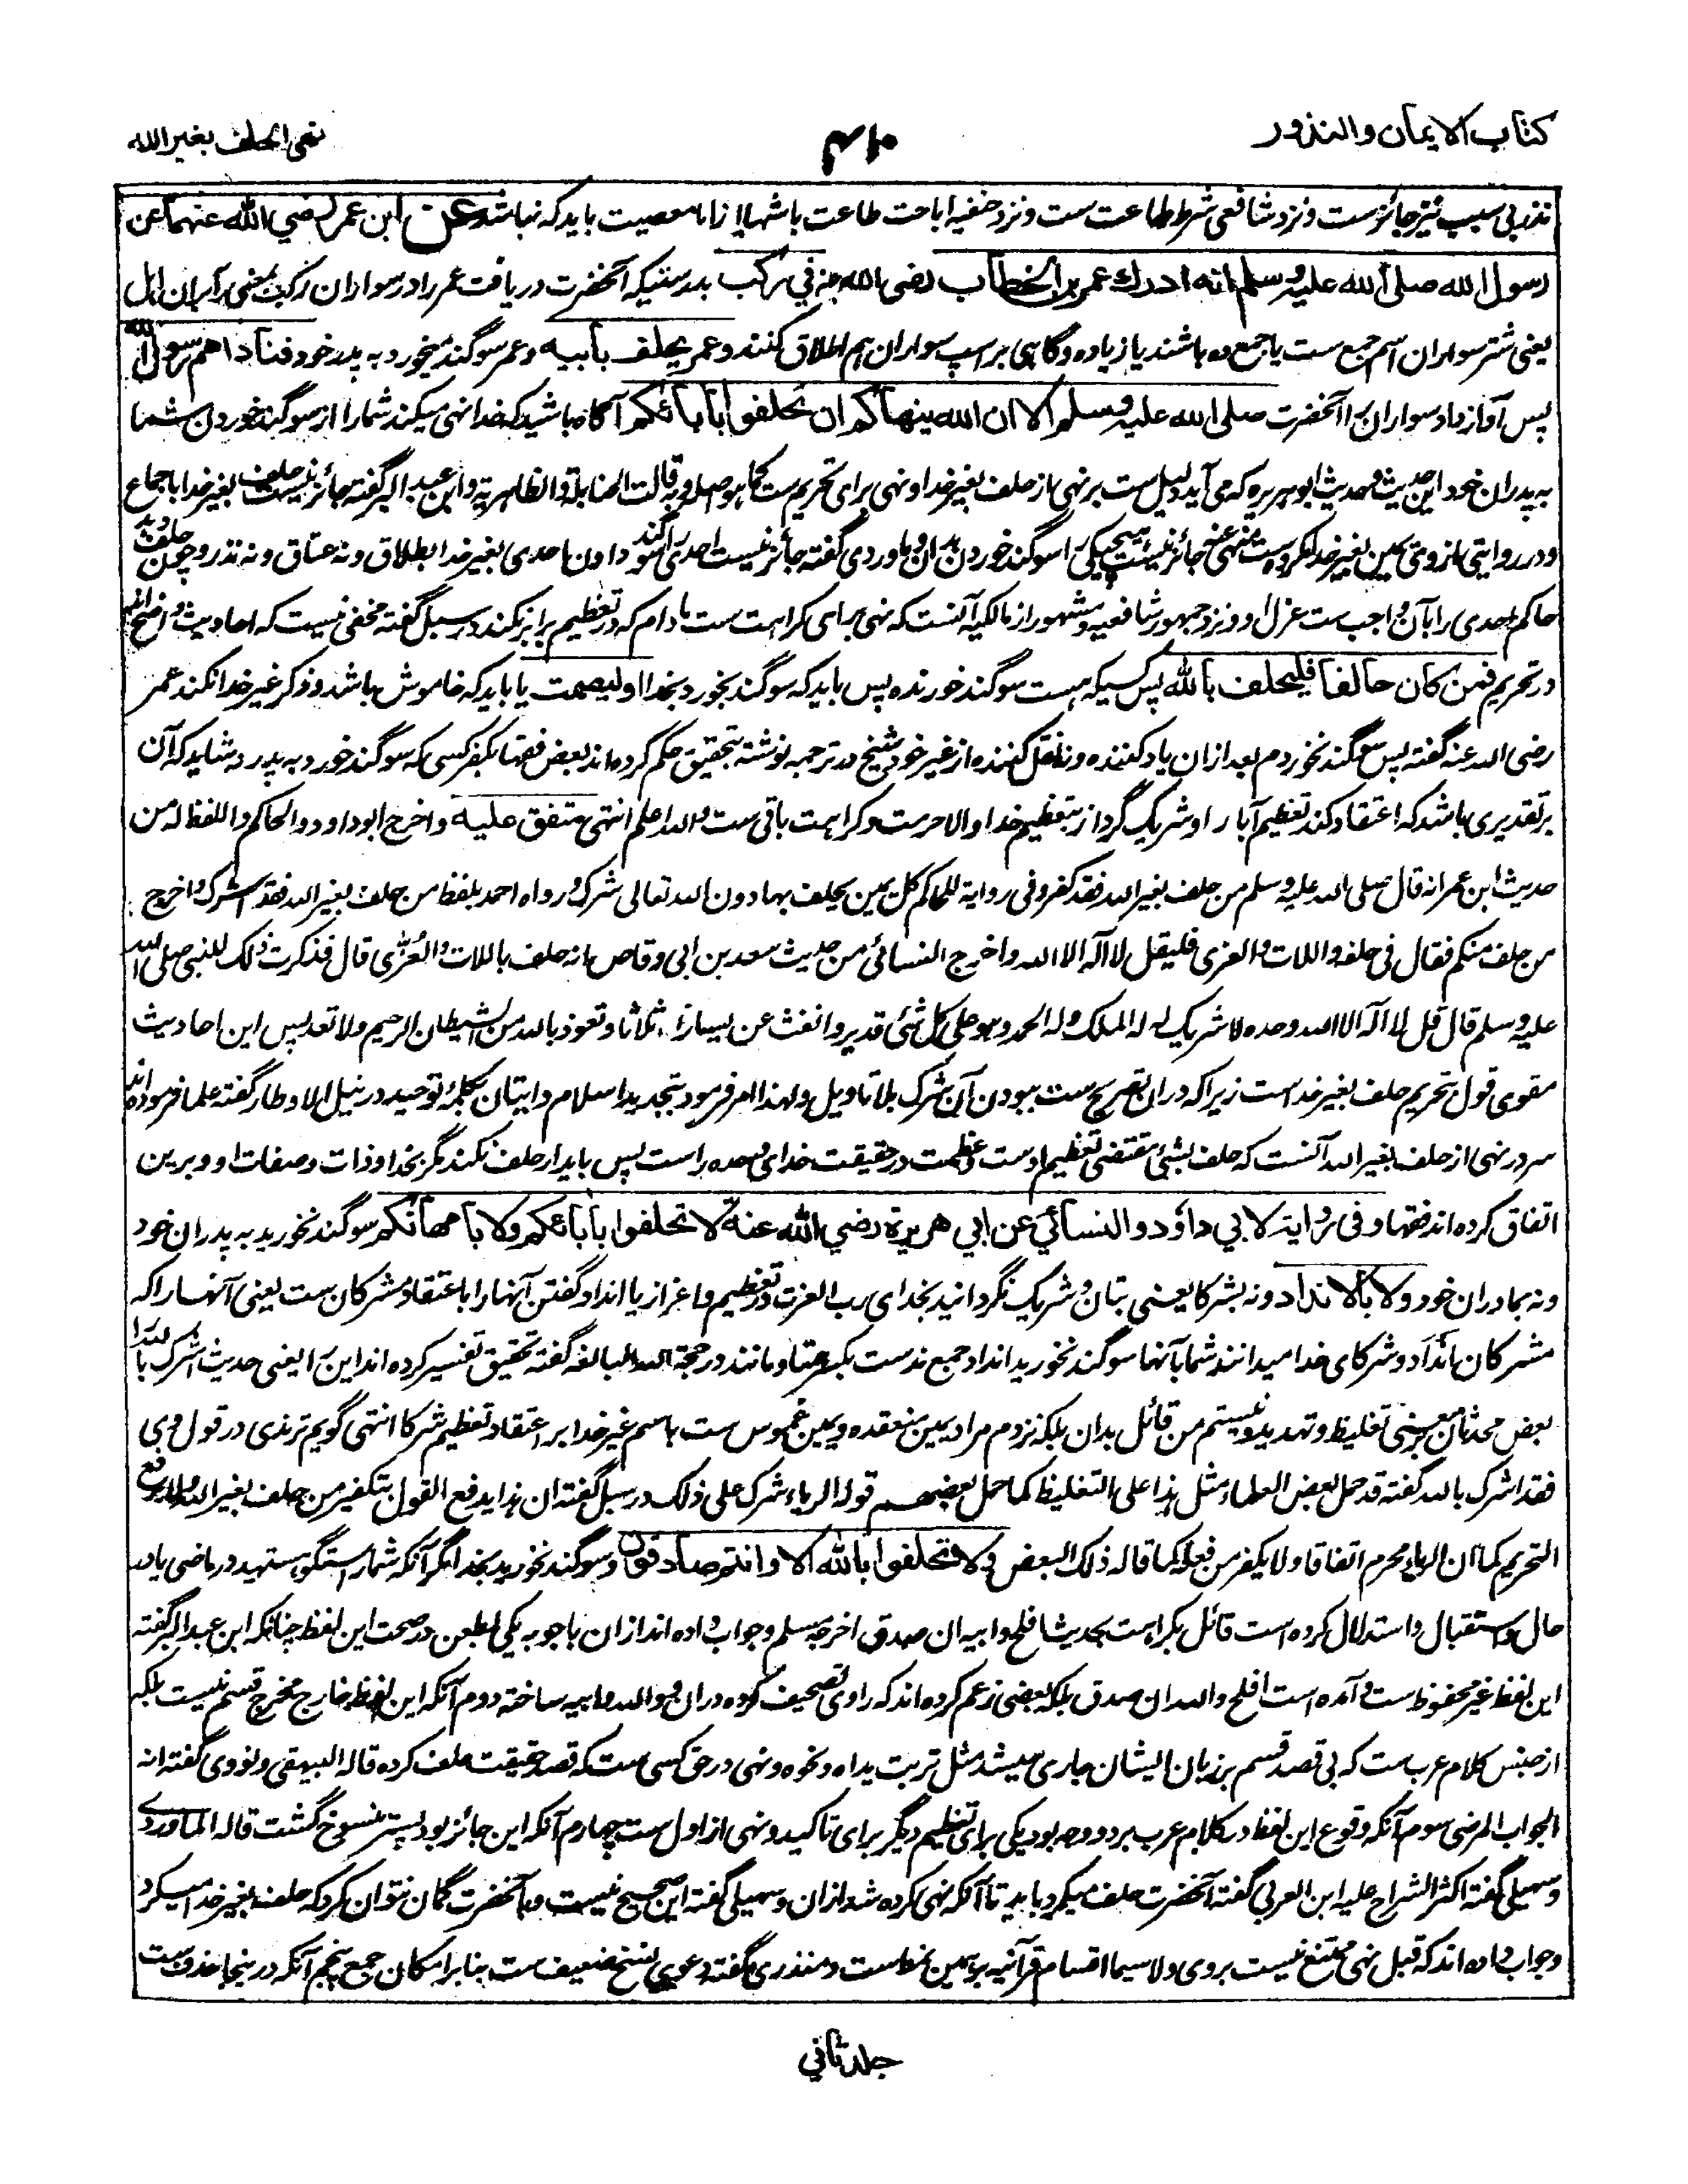 كتاب الايمان والنذور
نهى الحلف بغير الله
نذر بی سبب نیز جائزست و نزد شافعی شرط طاعت ست و نزد حنفیه اباحت طاعت باشد یا نه اما معصیت باید که نباشد وعن ابن عمر رضي الله عنهما عن
رسول الله صلى الله عليه وسلم انه ادرك عمر بن الخطاب رضي الله عنه في ركب بدرستیکه آنحضرت دریافت عمر را در سواران رکب بمعنی راکبان ابل
یعنی شتر سواران اسم جمع ست یا جمع ده باشند یا زیاده و گاهی بر اسپ سواران هم اطلاق کنند وعمر يحلف بابيه و عمر سوگند میخورد به پدر خود فناداهم رسول الله
پس آواز داد سواران را آنحضرت صلى الله عليه وسلم الا ان الله ينهاكم ان تحلفوا بآبائكم آگاه باشید که خدا نهی میکند شما را از سوگند خوردن شما
به پدران خود این حدیث و حدیث ابوهریره که می آید دلیل ست بر نهی از حلف بغیر خدا و نهی برای تحریم ست کما هو اصله وبه قالت الحنابلة والظاهرية وابن عبد البر گفته جائز نیست حلف بغیر خدا باجماع
و در روایتی از وی یمین بغیر خدا مکروه ست منهی عنه جائز نیست هیچ یکی را سوگند خوردن بدان و ماوردی گفته جائز نیست احدی را سوگند دادن احدی بغیر خدا بطلاق و نه عتاق و نه نذر و چون حلف دهد
حاکم احدی را بآن واجب ست عزل او و نزد جمهور شافعیه و مشهور از مالکیه آنست که نهی برای کراهت ست مادام که در تعظیم برابر نکند در سبل گفته مخفی نیست که احادیث واضح اند
در تحریم فمن كان حالفا فليحلف بالله پس کسیکه هست سوگند خورنده پس باید که سوگند بخورد بخدا او ليصمت یا باید که خاموش باشد و ذکر غیر خدا نکند عمر
رضی الله عنه گفته پس سوگند نخوردم بعد ازان یاد کننده و نه نقل کننده از غیر خود شیخ در ترجمه نوشته بتحقیق حکم کرده اند بعض فقها بکفر کسی که سوگند خورد به پدر و شاید که آن
بر تقدیری باشد که اعتقاد کند تعظیم آبا را و شریک گرداند بتعظیم خدا والا حرمت و کراهت باقی ست والله اعلم انتهی متفق عليه واخرج ابوداود والحاكم واللفظ له من
حديث ابن عمر انه قال صلى الله عليه وسلم من حلف بغير الله فقد كفر وفي رواية للحاكم كل يمين يحلف بها دون الله تعالى شرك ورواه احمد بلفظ من حلف بغير الله فقد اشرك واخرج
من حلف منكم فقال في حلفه واللات والعزى فليقل لا اله الا الله واخرج النسائي من حديث سعد بن ابي وقاص انه حلف باللات والعزى قال فذكرت ذلك للنبي صلى الله
عليه وسلم قال قل لا اله الا الله وحده لا شريك له له الملك وله الحمد وهو على كل شئ قدير وانفث عن يسارك ثلاثا وتعوذ بالله من الشيطان الرجيم ولا تعد پس این احادیث
مقوی قول بتحریم حلف بغیر خداست زیرا که دران تصریح ست ببودن آن شرک بلا تاویل و لهذا امر فرمود بتجدید اسلام و اتیان بکلمهٔ توحید در نیل الاوطار گفته علما فرموده اند
سر در نهی از حلف بغیر الله آنست که حلف بشئ مقتضی تعظیم اوست و عظمت در حقیقت خدای وحده راست پس باید از حلف نکند مگر بخدا و ذات و صفات او و برین
اتفاق کرده اند فقها وفي رواية لابي داود والنسائي عن ابي هريرة رضي الله عنه لا تحلفوا بآبائكم ولا بامهاتكم سوگند نخورید به پدران خود
و نه بمادران خود ولا بالانداد و نه بشرکا یعنی بتان و شریک نگردانید بخدای رب العزت در تعظیم و اعزاز یا انداد گفتن آنها را باعتقاد مشرکان ست یعنی آنها را که
مشرکان انداد و شرکای خدا میدانند شما بآنها سوگند نخورید انداد جمع ند ست بکسر همتا و مانند در حجة الله البالغه گفته تحقیق تفسیر کرده اند این را یعنی حدیث اشرک بالله را
بعض محدثان بر معنی تغلیظ و تهدید و نیستم من قائل بدان بلکه نزدم مراد یمین منعقده و یمین غموس ست باسم غیر خدا بر اعتقاد تعظیم شرکا انتهی گویم ترمذی در قول وی
فقد اشرك بالله گفته قد حمل بعض العلماء مثل هذا على التغليظ كما حمل بعضهم قوله الرياء شرك على ذلك در سبل گفته ان هذا يدفع القول بتكفير من حلف بغير الله ولا يرفع
التحريم كما ان الرياء محرم اتفاقا ولا يكفر من فعله كما قاله ذلك البعض ولا تحلفوا بالله الا وانتم صادقون و سوگند نخورید بخدا مگر آنکه شما راستگو هستید در ماضی یا در
حال و استقبال و استدلال کرده است قائل بکراهت بحدیث افلح وابيه ان صدق اخرجه مسلم و جواب داده اند ازان باجوبه یکی طعن در صحت این لفظ چنانکه ابن عبد البر گفته
این لفظ غیر محفوظ ست و آمده است افلح والله ان صدق بلکه بعضی زعم کرده اند که راوی تصحیف کرده دران و والله را وابیه ساخته دوم آنکه این لفظ خارج مخرج قسم نیست بلکه
از جنس کلام عرب ست که بی قصد قسم بر زبان ایشان جاری میشد مثل تربت یداه و نحوه و نهی در حق کسی ست که قصد حقیقت حلف کرده قاله البیهقی و نووی گفته انه
الجواب المرضی سوم آنکه وقوع این لفظ در کلام عرب بر دو وجه بود یکی برای تعظیم دیگر برای تاکید و نهی از اول ست چهارم آنکه این جائز بود پستر منسوخ گشت قاله الماوردی
و سهیلی گفته اکثر الشراح علیه ابن العربی گفته آنحضرت حلف میکرد بابیه تا آنکه نهی کرده شد ازان و سهیلی گفته این صحیح نیست و بآنحضرت گمان نتوان کرد که حلف بغیر خدا میکرد
و جواب داده اند که قبل نهی ممتنع نیست بروی ولا سیما اقسام قرآنیه برهمین نمط ست و منذری گفته دعوی نسخ ضعیف ست بنابر امکان جمع پنجم آنکه درینجا حذف ست
جلد ثاني